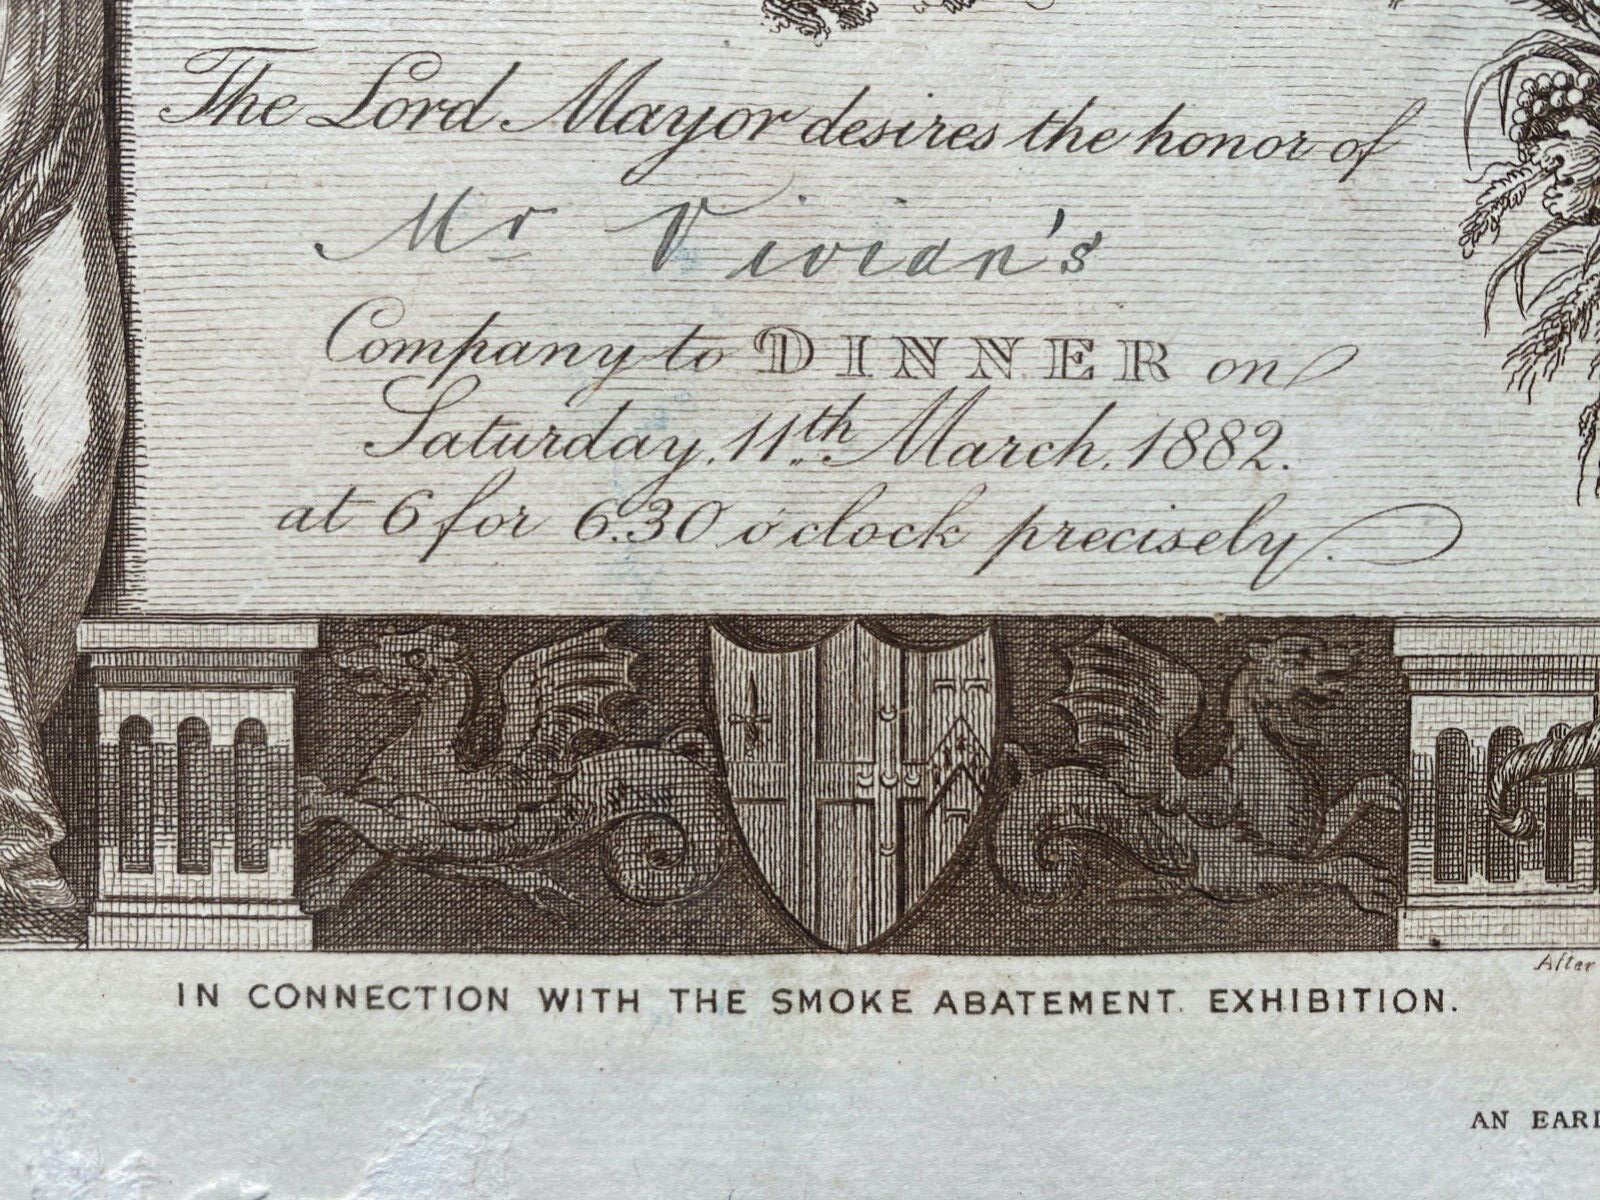 The Lord Mayor desires the honor of
Mr Vivian's
Company to DINNER on
Saturday, 11th March, 1882.
at 6 for 6.30 o'clock precisely.
After
IN CONNECTION WITH THE SMOKE ABATEMENT. EXHIBITION.
AN EARL